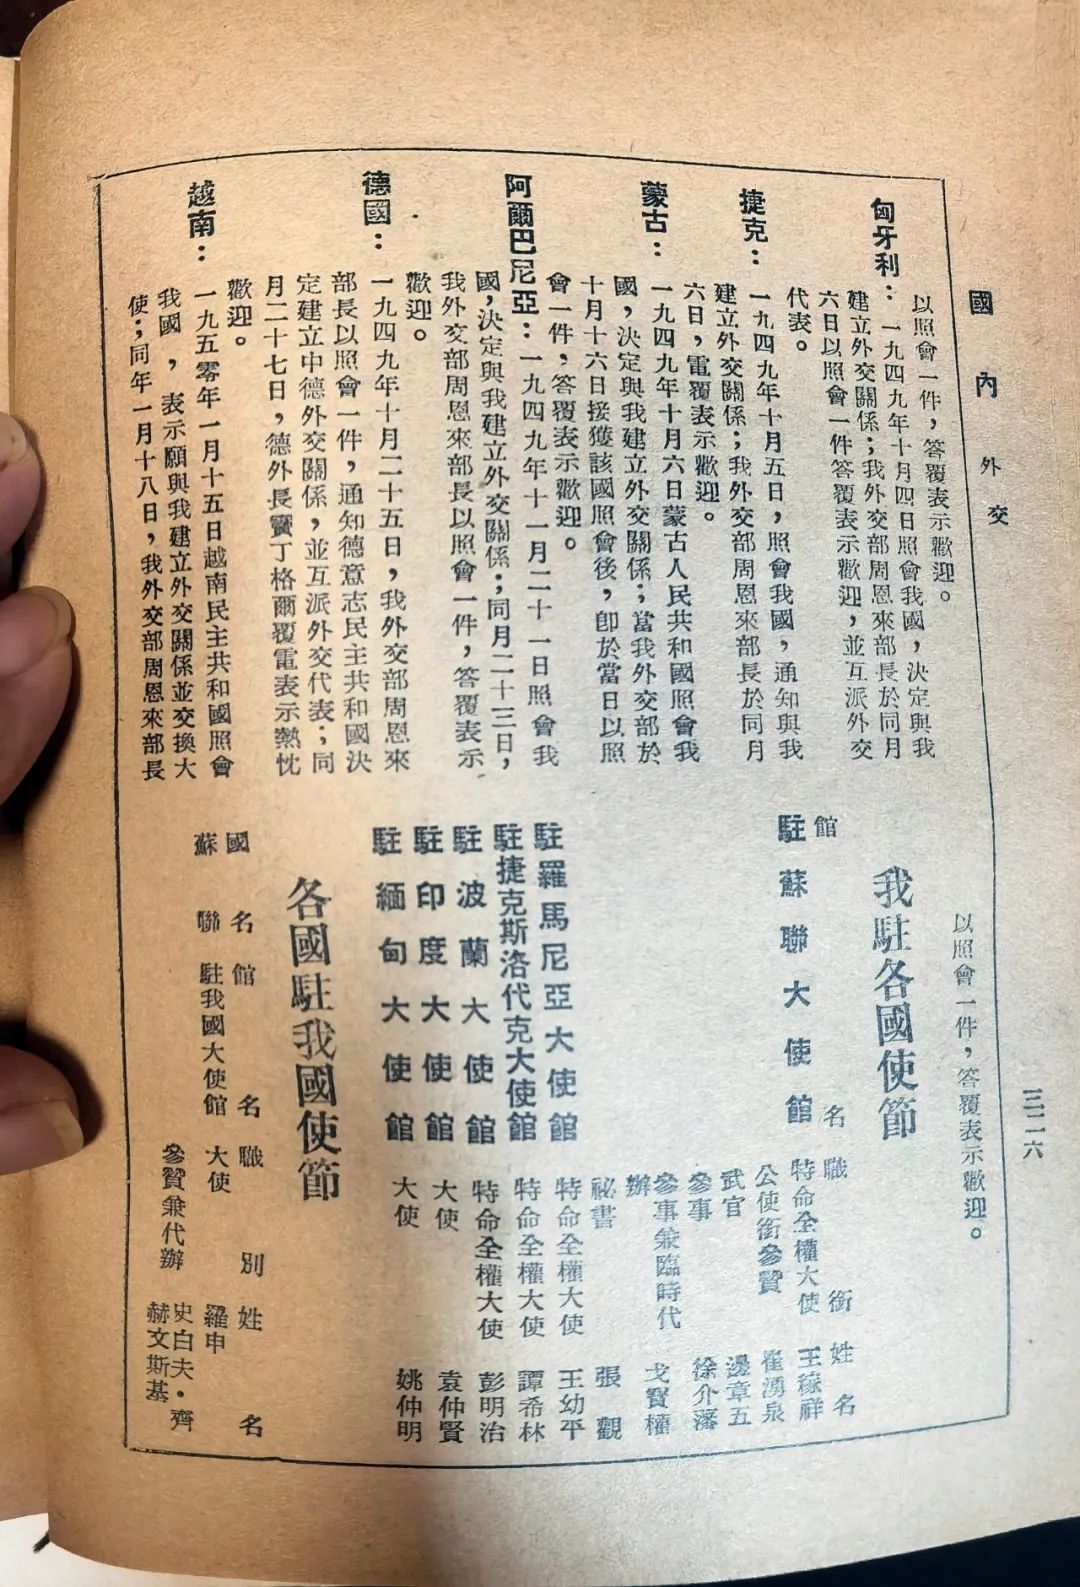 國內外交
三二六
以照會一件，答覆表示歡迎。
匈牙利：一九四九年十月四日照會我國，決定與我
建立外交關係；我外交部周恩來部長於同月
六日以照會一件答覆表示歡迎，並互派外交
代表。
捷克：一九四九年十月五日，照會我國，通知與我
建立外交關係；我外交部周恩來部長於同月
六日，電覆表示歡迎。
蒙古：一九四九年十月六日蒙古人民共和國照會我
國，決定與我建立外交關係；當我外交部於
十月十六日接獲該國照會後，卽於當日以照
會一件，答覆表示歡迎。
阿爾巴尼亞：一九四九年十一月二十一日照會我
國，決定與我建立外交關係；同月二十三日，
我外交部周恩來部長以照會一件，答覆表示
歡迎。
德國：一九四九年十月二十五日，我外交部周恩來
部長以照會一件，通知德意志民主共和國決
定建立中德外交關係，並互派外交代表；同
月二十七日，德外長竇丁格爾覆電表示熱忱
歡迎。
越南：一九五零年一月十五日越南民主共和國照會
我國，表示願與我建立外交關係並交換大
使；同年一月十八日，我外交部周恩來部長
以照會一件，答覆表示歡迎。
我駐各國使節
館名 職銜 姓名
駐蘇聯大使館 特命全權大使 王稼祥
公使銜參贊 崔湧泉
武官 邊章五
參事 徐介藩
參事兼臨時代
辦 戈寶權
祕書 張觀
駐羅馬尼亞大使館 特命全權大使 王幼平
駐捷克斯洛代克大使館 特命全權大使 譚希林
駐波蘭大使館 特命全權大使 彭明治
駐印度大使館 大使 袁仲賢
駐緬甸大使館 大使 姚仲明
各國駐我國使節
國名 館名 職別 姓名
蘇聯 駐我國大使館 大使 羅申
參贊兼代辦 史白夫・齊
赫文斯基